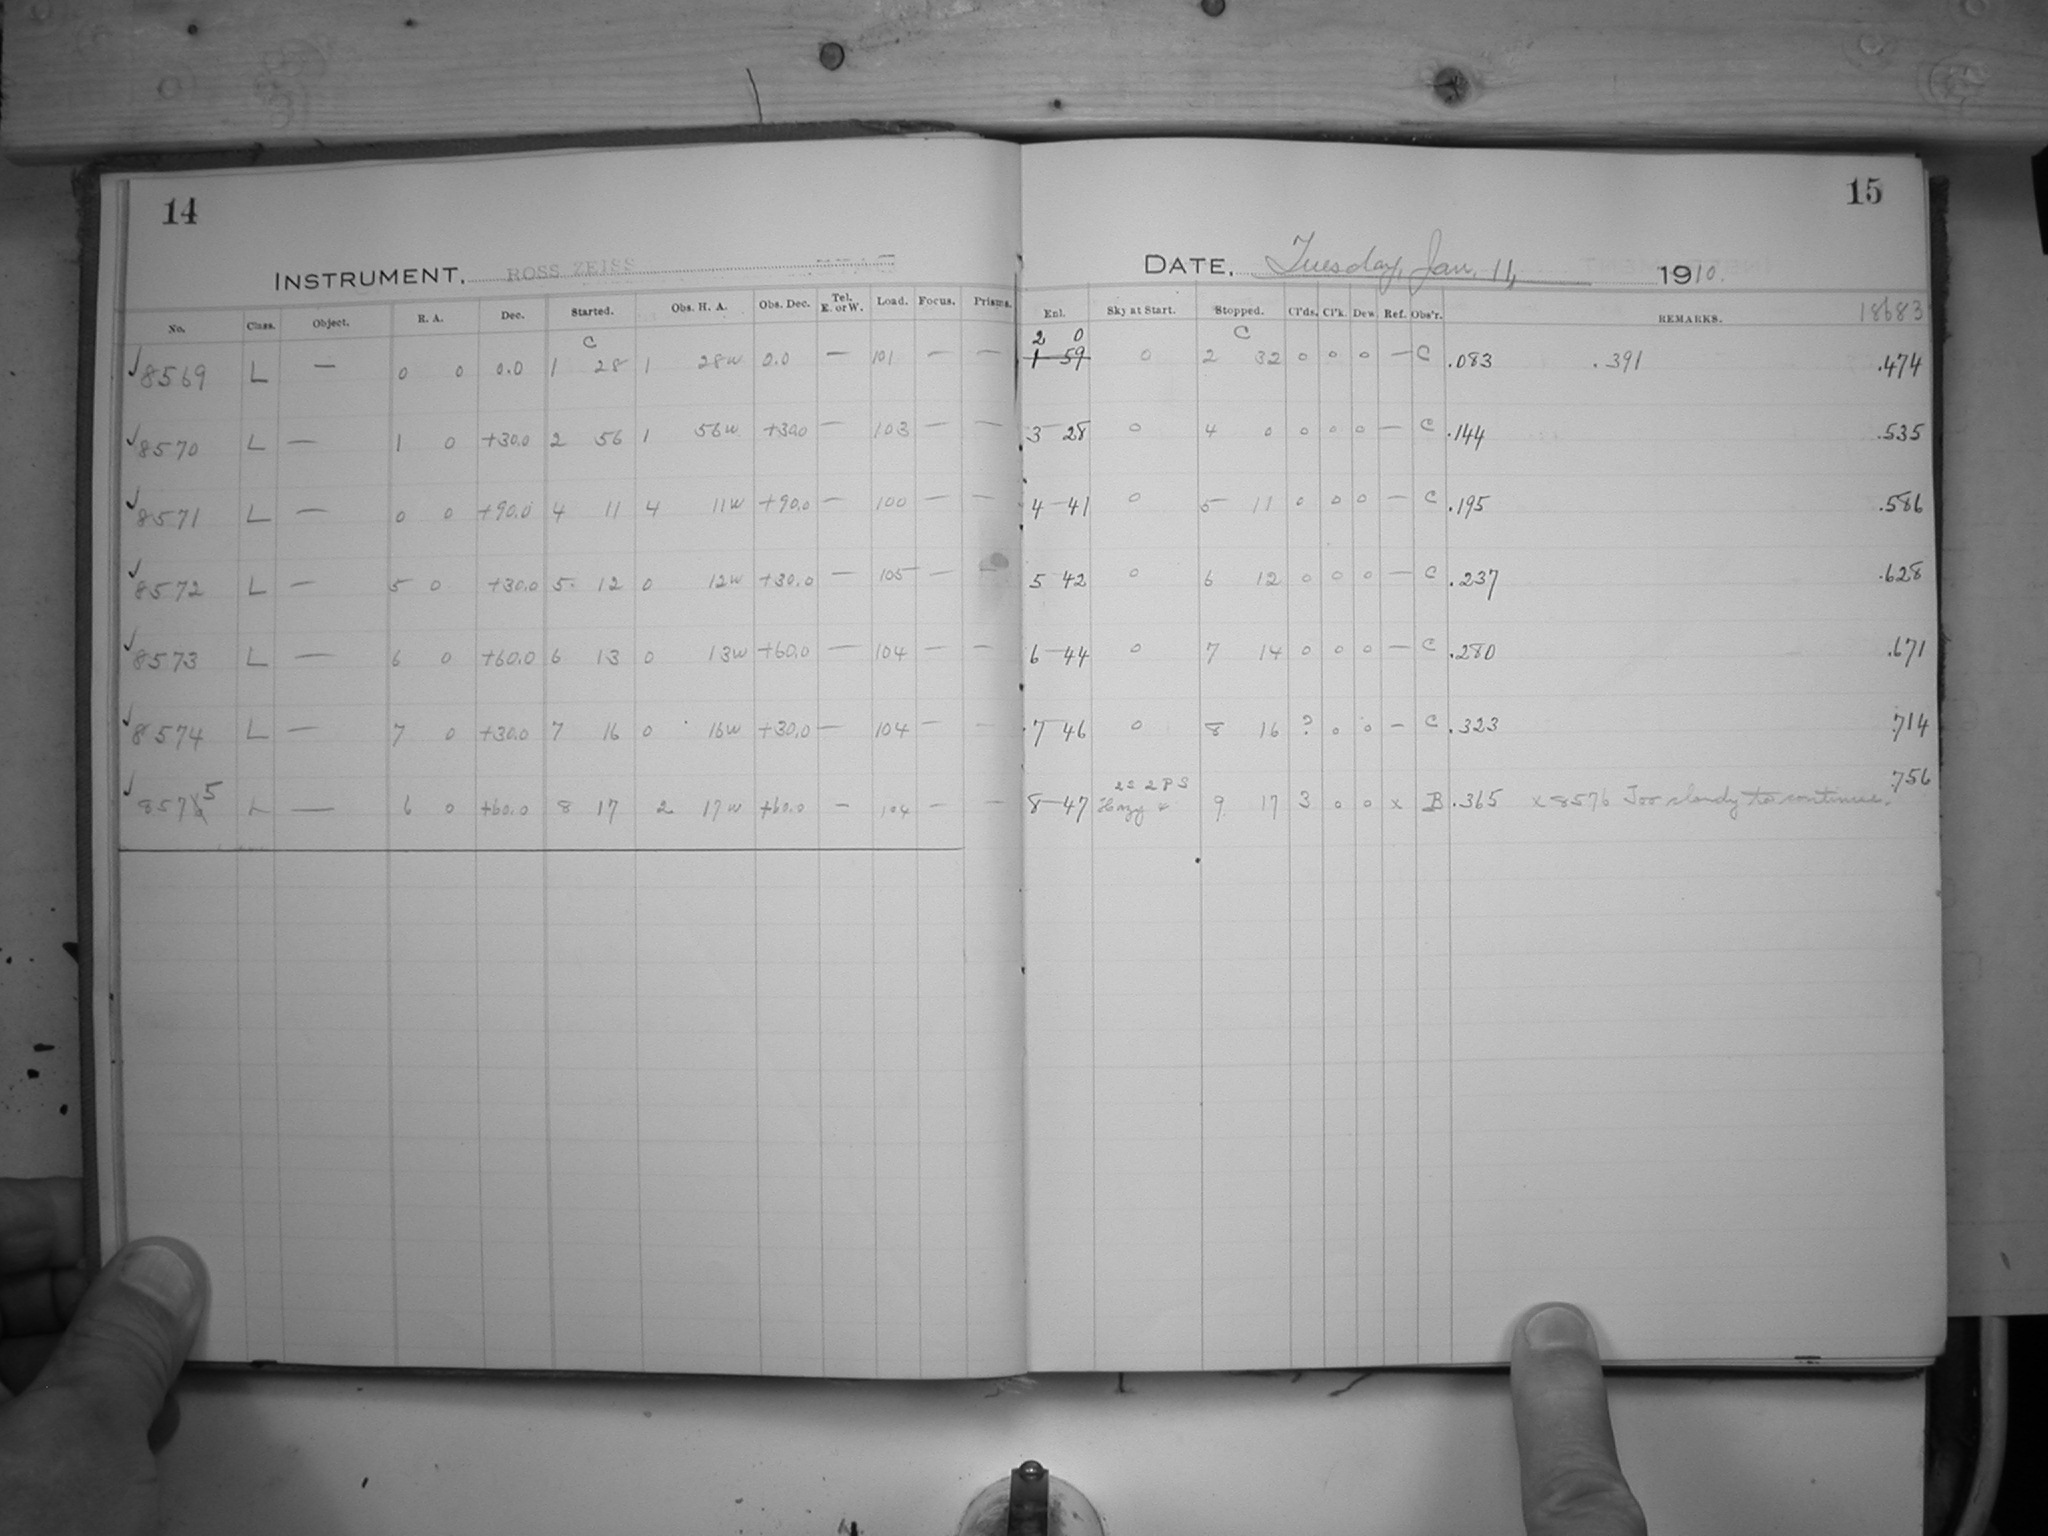 14
INSTRUMENT, ROSS ZEISS
No. Class. Object. R. A. Dec. Started. Obs. H. A. Obs. Dec. Tel. E. or W. Load. Focus. Prisms.
✓8569 L — 0 0 0.0 C 1 28 1 28w 0.0 — 101 — —
✓8570 L — 1 0 +30.0 2 56 1 56w +30.0 — 103 — —
✓8571 L — 0 0 +90.0 4 11 4 11w +90.0 — 100 — —
✓8572 L — 5 0 +30.0 5 12 0 12w +30.0 — 105 — —
✓8573 L — 6 0 +60.0 6 13 0 13w +60.0 — 104 — —
✓8574 L — 7 0 +30.0 7 16 0 16w +30.0 — 104 — —
✓8575 L — 6 0 +60.0 8 17 2 17w +60.0 — 104 — —
15
DATE, Tuesday, Jan. 11, 1910.
Enl. Sky at Start. Stopped. Cl'ds. Cl'k. Dew. Ref. Obs'r. REMARKS. 18683
2 0
1 59 0 C 2 32 0 0 0 — C .083 .391 .474
3 28 0 4 0 0 0 0 — C .144 .535
4 41 0 5 11 0 0 0 — C .195 .586
5 42 0 6 12 0 0 0 — C .237 .628
6 44 0 7 14 0 0 0 — C .280 .671
7 46 0 8 16 ? 0 0 — C .323 .714
2S 2PS .756
8 47 Hazy + 9 17 3 0 0 x B .365 x 8576 Too cloudy to continue.